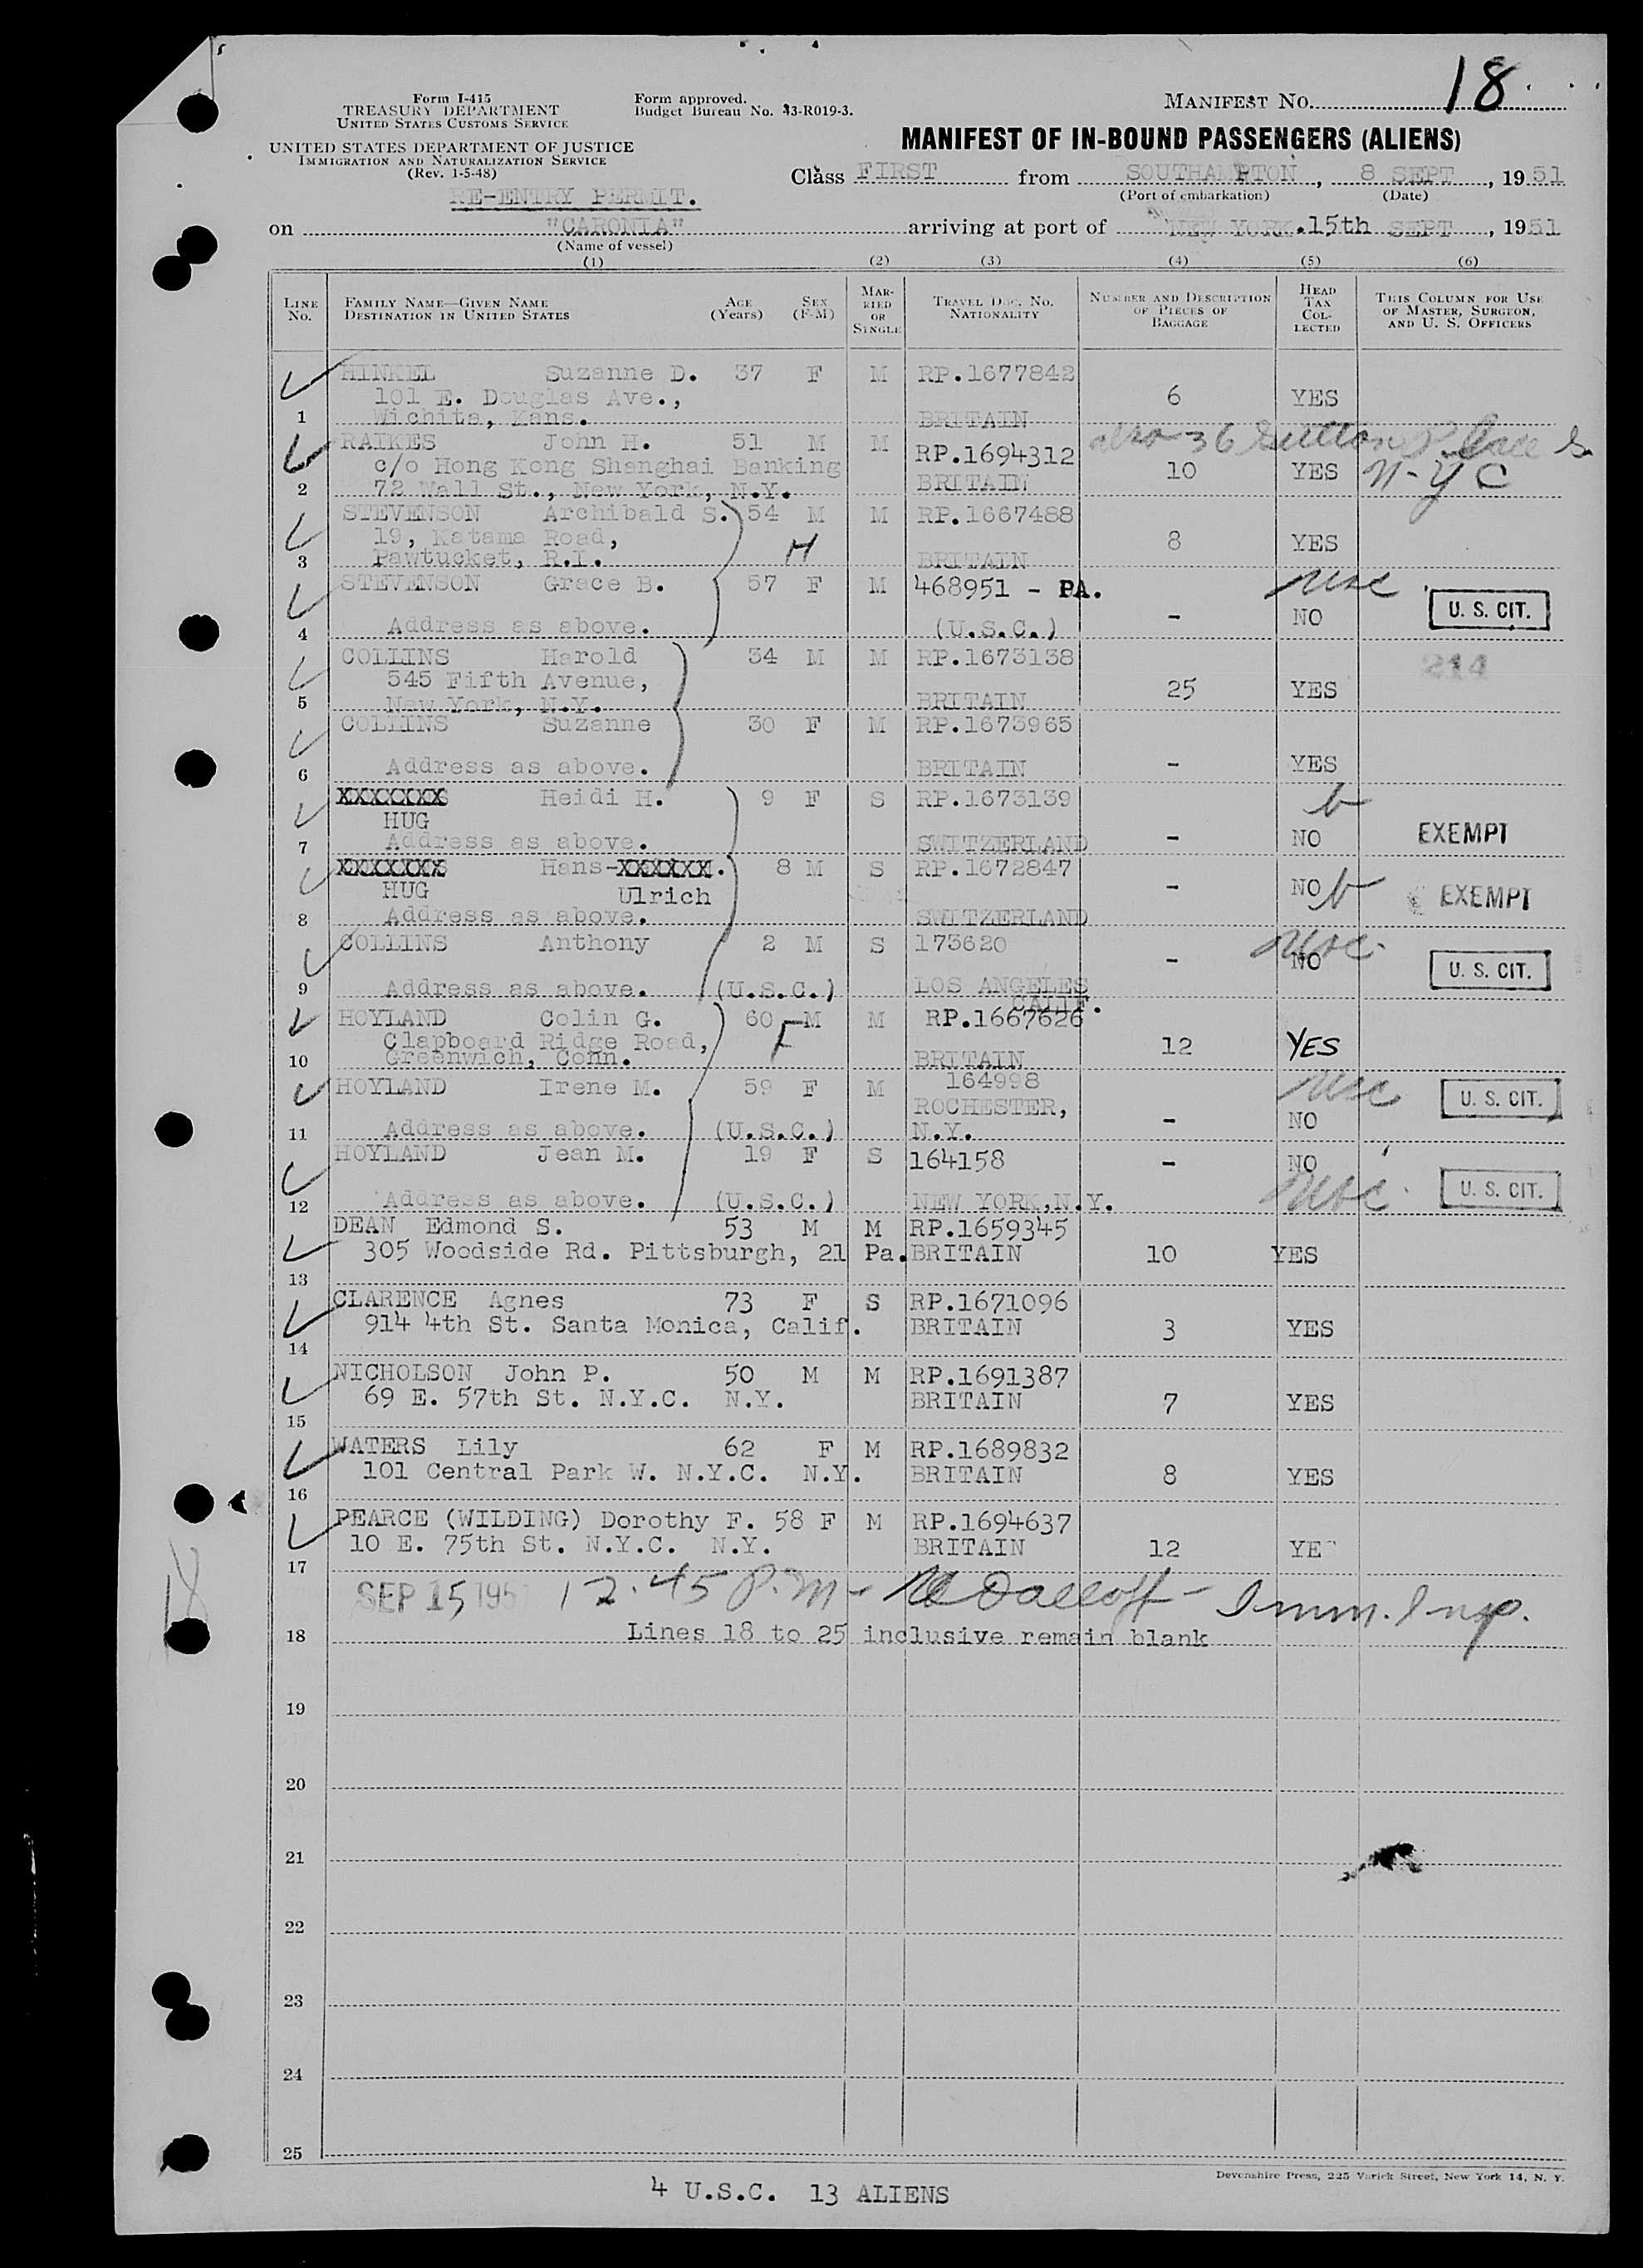 18
Form I-415
TREASURY DEPARTMENT
UNITED STATES CUSTOMS SERVICE
UNITED STATES DEPARTMENT OF JUSTICE
IMMIGRATION AND NATURALIZATION SERVICE
(Rev. 1-5-48)
Form approved.
Budget Bureau No. 43-R019-3.
MANIFEST NO.
MANIFEST OF IN-BOUND PASSENGERS (ALIENS)
Class FIRST from SOUTHAMPTON, 8 SEPT, 1951
(Port of embarkation) (Date)
RE-ENTRY PERMIT.
on "CARONIA" arriving at port of NEW YORK.15th SEPT, 1951
(Name of vessel)
(1) (2) (3) (4) (5) (6)
LINE NO. FAMILY NAME—GIVEN NAME DESTINATION IN UNITED STATES AGE (Years) SEX (F-M) MARRIED OR SINGLE TRAVEL DOC. NO. NATIONALITY NUMBER AND DESCRIPTION OF PIECES OF BAGGAGE HEAD TAX COLLECTED THIS COLUMN FOR USE OF MASTER, SURGEON, AND U. S. OFFICERS
HINKEL Suzanne D. 37 F M RP.1677842
101 E. Douglas Ave., 6 YES
1 Wichita, Kans. BRITAIN
RAIKES John H. 51 M M RP.1694312 also 36 Sutton Place S.
c/o Hong Kong Shanghai Banking 10 YES N-Y C
2 72 Wall St., New York, N.Y. BRITAIN
STEVENSON Archibald S. 54 M M RP.1667488
19, Katama Road, H 8 YES
3 Pawtucket, R.I. BRITAIN
STEVENSON Grace B. 57 F M 468951 - PA. usc
4 Address as above. (U.S.C.) - NO U. S. CIT.
COLLINS Harold 34 M M RP.1673138 214
545 Fifth Avenue, 25 YES
5 New York, N.Y. BRITAIN
COLLINS Suzanne 30 F M RP.1673965
6 Address as above. BRITAIN - YES
XXXXXXXX Heidi H. 9 F S RP.1673139
HUG
7 Address as above. SWITZERLAND - NO EXEMPT
XXXXXXX Hans-XXXXXX. 8 M S RP.1672847
HUG Ulrich - NO EXEMPT
8 Address as above. SWITZERLAND
COLLINS Anthony 2 M S 173620 usc
- NO U. S. CIT.
9 Address as above. (U.S.C.) LOS ANGELES CALIF.
HOYLAND Colin G. 60 M M RP.1667626
Clapboard Ridge Road, F 12 YES
10 Greenwich, Conn. BRITAIN
HOYLAND Irene M. 59 F M 164998 usc U. S. CIT.
ROCHESTER, - NO
11 Address as above. (U.S.C.) N.Y.
HOYLAND Jean M. 19 F S 164158 - NO
12 Address as above. (U.S.C.) NEW YORK,N.Y. usc U. S. CIT.
DEAN Edmond S. 53 M M RP.1659345
305 Woodside Rd. Pittsburgh, 21 Pa. BRITAIN 10 YES
13
CLARENCE Agnes 73 F S RP.1671096
914 4th St. Santa Monica, Calif. BRITAIN 3 YES
14
NICHOLSON John P. 50 M M RP.1691387
69 E. 57th St. N.Y.C. N.Y. BRITAIN 7 YES
15
WATERS Lily 62 F M RP.1689832
101 Central Park W. N.Y.C. N.Y. BRITAIN 8 YES
16
PEARCE (WILDING) Dorothy F. 58 F M RP.1694637
10 E. 75th St. N.Y.C. N.Y. BRITAIN 12 YE
17
SEP 15 195 12.45 P.M - Imm. Insp.
18 Lines 18 to 25 inclusive remain blank
19
20
21
22
23
24
25
Devonshire Press, 225 Varick Street, New York 14, N. Y.
4 U.S.C. 13 ALIENS
18